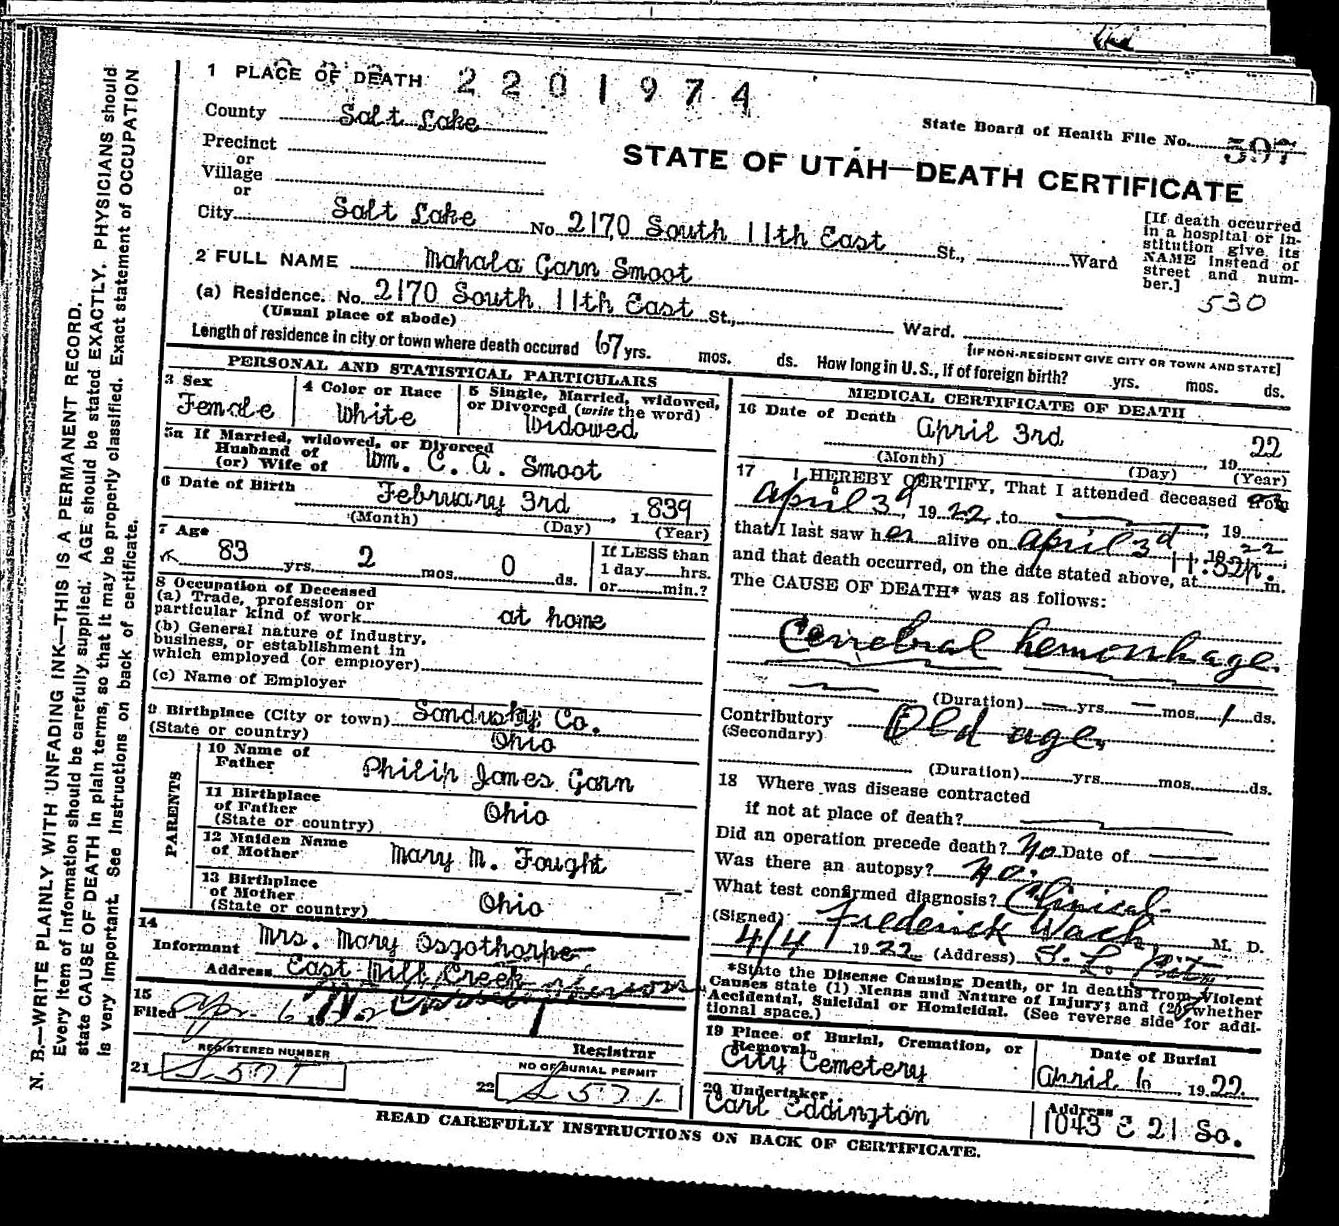 1 PLACE OF DEATH 2201974
County Salt Lake
State Board of Health File No. 597
Precinct
or
Village
or
STATE OF UTAH—DEATH CERTIFICATE
City Salt Lake No. 2170 South 11th East St., Ward
[If death occurred in a hospital or institution give its NAME instead of street and number.]
530
2 FULL NAME Mahala Garn Smoot
(a) Residence. No. 2170 South 11th East St., Ward.
(Usual place of abode)
[IF NON-RESIDENT GIVE CITY OR TOWN AND STATE]
Length of residence in city or town where death occured 67 yrs. mos. ds. How long in U. S., if of foreign birth? yrs. mos. ds.
PERSONAL AND STATISTICAL PARTICULARS
3 Sex Female
4 Color or Race White
5 Single, Married, widowed, or Divorced (write the word) Widowed
5a If Married, widowed, or Divorced
Husband of
(or) Wife of Wm. C. A. Smoot
6 Date of Birth February 3rd, 1839
(Month) (Day) (Year)
7 Age 83 yrs. 2 mos. 0 ds.
If LESS than
1 day hrs.
or min.?
8 Occupation of Deceased
(a) Trade, profession or
particular kind of work at home
(b) General nature of industry,
business, or establishment in
which employed (or employer)
(c) Name of Employer
9 Birthplace (City or town) Sandusky Co.
(State or country) Ohio
PARENTS
10 Name of
Father Philip James Garn
11 Birthplace
of Father
(State or country) Ohio
12 Maiden Name
of Mother Mary M. Fought
13 Birthplace
of Mother
(State or country) Ohio
14
Informant Mrs. Mary Osgothorpe
Address East Mill Creek
15
Filed Apr. 6
Registrar
REGISTERED NUMBER
21
NO OF BURIAL PERMIT
22 S 571
MEDICAL CERTIFICATE OF DEATH
16 Date of Death April 3rd, 1922
(Month) (Day) (Year)
17 I HEREBY CERTIFY, That I attended deceased from
April 3d, 1922 to 19
that I last saw her alive on April 3d 1922
and that death occurred, on the date stated above, at m.
The CAUSE OF DEATH* was as follows:
Cerrebral hemorrhage.
(Duration) — yrs. — mos. 1 ds.
Contributory Old age
(Secondary)
(Duration) yrs. mos. ds.
18 Where was disease contracted
if not at place of death?
Did an operation precede death? No Date of
Was there an autopsy? No.
What test confirmed diagnosis? Clinical
(Signed) Frederick Wach, M. D.
4/4 1922 (Address) S. L. City
*State the Disease Causing Death, or in deaths from Violent
Causes state (1) Menas and Nature of Injury; and (2) whether
Accidental, Suicidal or Homicidal. (See reverse side for addi-
tional space.)
19 Place of Burial, Cremation, or
Removal
City Cemetery
Date of Burial
April 6, 1922
20 Undertaker
Carl Eddington
Address
1043 E 21 So.
READ CAREFULLY INSTRUCTIONS ON BACK OF CERTIFICATE.
N. B.—WRITE PLAINLY WITH UNFADING INK—THIS IS A PERMANENT RECORD.
Every item of information should be carefully supplied. AGE should be stated EXACTLY. PHYSICIANS should
state CAUSE OF DEATH in plain terms, so that it may be properly classified. Exact statement of OCCUPATION
is very important. See Instructions on back of certificate.